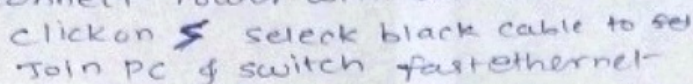 click on 5 seleck black cable to sel
Join PC & switch fastethernet